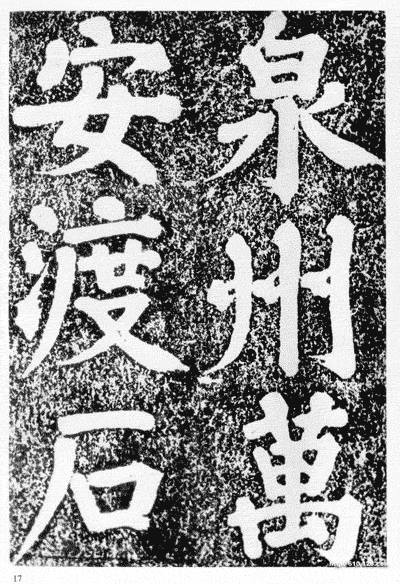 泉州萬
安渡石
17